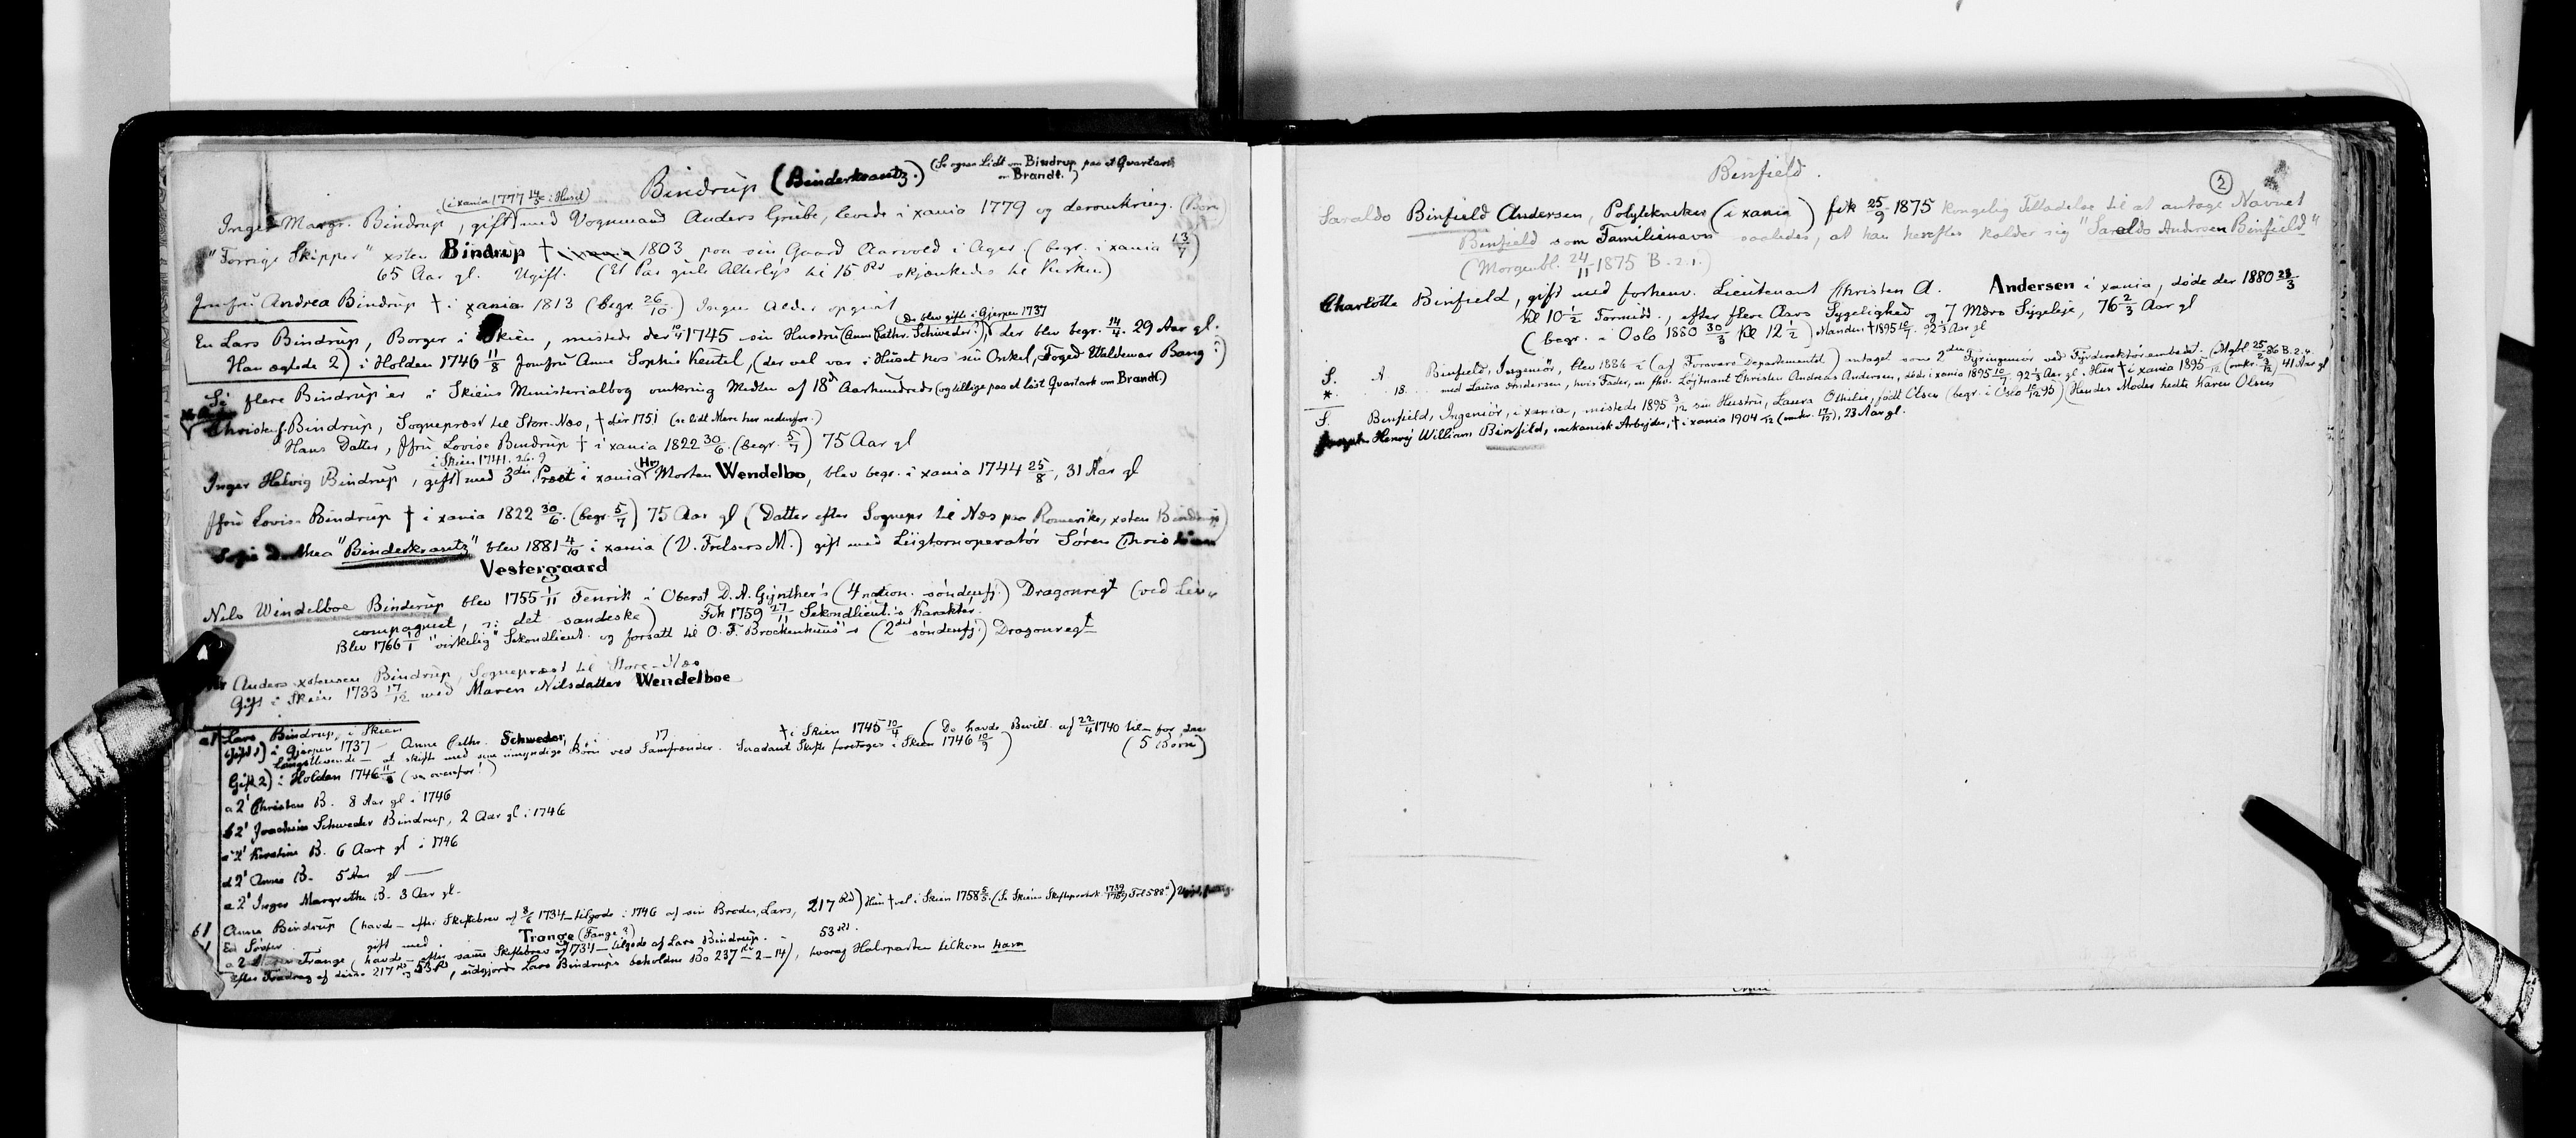 Bindrup (Binderkrantz.) (Se ogsaa Lidt om Bindrup paa et Qvartark
om Brandt.)
(i xania 1777 14/3 i Huset)
Inger Margr. Bindrup, gift med Vognmand Anders Grube, levede i xania 1779 og deromkring.
"Forrige Skipper" xsten Bindrup † 1803 paa sin Gaard Aarvold i Ager (begr. i xania 13/7)
65 Aar gl. Ugift. (Et Par gule Alterlys til 15 Rd skjænkedes til Kirken)
Jomfru Andrea Bindrup † i xania 1813 (begr. 26/10) Ingen Alder opgivet
(De blev gifte i Gjerpen 1737
En Lars Bindrup, Borger i Skien, mistede der 10/4 1745 sin Hustru (Anne Cathr. Schweder?), der blev begr. 14/4. 29 Aar gl.
Han ægtede 2) i Holden 1746 11/8 Jomfru Anne Sophie Keutel, (der vel var i Huset hos sin Onkel, Foged Waldemar Bang?)
flere Bindrup'er i Skiens Ministerialbog omkring Midten af 18de Aarhundrede (og tillige paa et løst Qvartark om Brandt.)
Christen Bindrup, Sognepræst til Store-Næs, † der 1751 (se lidt Mere her nedenfor.)
Hans Datter, Jfru Lovise Bindrup † i xania 1822 30/6. (begr. 5/7) 75 Aar gl
i Skien 1741. 26. 9
Inger Helvig Bindrup, gift med 3die Præst i xania Hr. Morten Wendelbo, blev begr. i xania 1744 25/8, 31 Aar gl
Jfru Lovise Bindrup † i xania 1822 30/6. (begr. 5/7) 75 Aar gl (Datter efter Sognepr. til Næs paa Romerike, xsten Bindrup)
"Binderkrantz" blev 1881 4/10 i xania (V. Frelsers M.) gift med Ligtornoperatør Søren Christian
Vestergaard
Nils Windelboe Binderup blev 1755 1/11 Fenrik i Oberst D. A. Gynther's (4 nation. søndenfj.) Dragonregt (ved Liv-
compagniet, ɔ: det sandeske) Fik 1759 27/11 Sekondlieut.s Karakter.
Blev 1766 1/1 "virkelig" Sekondlieut. og forsatt til O. F. Brockenhuus's (2det søndenfj.) Dragonregt
Anders xstensen Bindrup, Sognepræst til Store-Næs
Gift i Skien 1733 17/12 med Maren Nilsdatter Wendelboe
a1 Lars Bindrup, i Skien
Gift 1) i Gjerpen 1737 Anne Cathr. Schweder, † i Skien 1745 10/4 (De havde Bevill. af 22/4 1740 til for den
længstlevende at skifte med sine umyndige Børn ved Samfrænder. Saadant Skifte foretoges i Skien 1746 10/9) (5 Børn)
Gift 2) i Holden 1746 11/8 (se ovenfor!)
a 2' Christen B. 8 Aar gl i 1746
b 2' Joachim Schweder Bindrup, 2 Aar gl i 1746
c 2' Kirstine B. 6 Aar gl i 1746
d 2' Anne B. 5 Aar gl —
e 2' Inger Margrethe B. 3 Aar gl.
b1 Anne Bindrup (havde efter Skiftebrev af 8/6 1734 tilgode i 1746 af sin Broder, Lars, 217 Rd) Hun † vel i Skien 1758 5/5.
En Søster gift med Trange (Fange?)
Trange, havde efter samme Skiftebrev af 1734 tilgode af Lars Bindrup. 53 Rd.
Efter Fradrag af disse 217 Rd og 53 Rd, udgjorde Lars Bindrups beholdne Bo 237 Rd–2–14), hvoraf Halvparten tilkom ham
Binfield.
2
Saraldo Binfield Andersen, Polytekniker (i xania) fik 25/9 1875 kongelig Tilladelse til at antage Navnet
Binfield som Familienavn saaledes, at han herefter kalder sig "Saraldo Andersen Binfield"
(Morgenbl. 24/11 1875 B. 2. 1.)
Charlotte Binfield, gift med forhenv. Lieutenant Christen A. Andersen i xania, døde der 1880 23/3
Kl 10 1/2 Formidd., efter flere Aars Sygelighed og 7 Mdrs Sygeleje, 76 2/3 Aar gl
(begr. i Oslo 1880 30/3 Kl 12 1/2) Manden † 1895 10/7. 92 1/3 Aar gl
S. A Binfield, Ingeniør, blev 1886 (af Forsvars-Departementet) antaget som 2den Fyringeniør ved Fyrdirektørembedet.
* 18 med Laura Andersen, hvis Fader, en fhv. Løjtnant Christen Andreas Andersen, døde i xania 1895 10/7. 92 1/3 Aar gl. Hun † i xania 1895 41 Aar gl
S. Binfield, Ingeniør, i xania, mistede 1895 3/12 sin Hustru, Laura Othilie, født Olsen (begr. i Oslo 10/12 95) (Hendes Moder hedte Karen Olsen)
Henry William Binfild, mekanisk Arbejder, † i xania 1904 23 Aar gl.